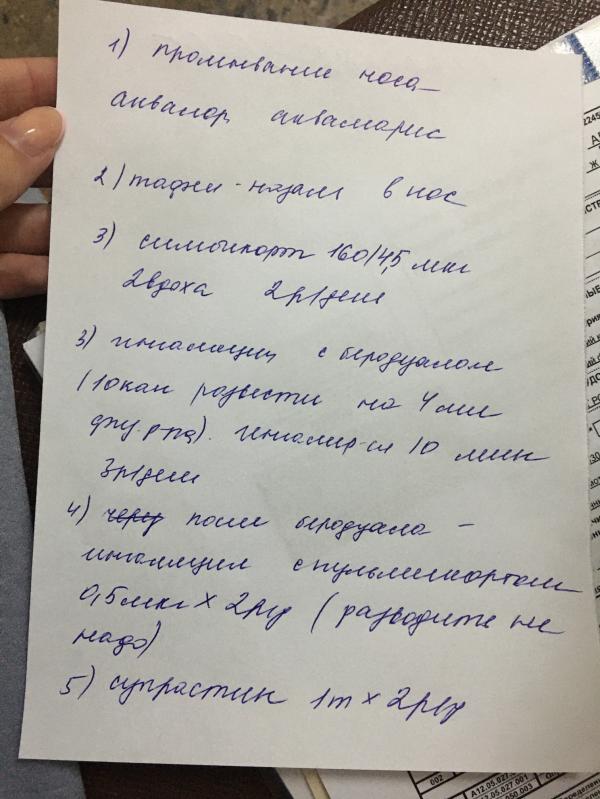 1) промывание носа
аквалор, аквамарис
2) тафен-назаль в нос
3) симбикорт 160/4,5 мкг
2 вдоха 2р/день
3) ингаляции с беродуалом
(10кап развести на 4 мл
физ. р-ра). ингалир-ся 10 мин
3р/день
4) через после беродуала -
ингаляции с пульмикортом
0,5мкг х 2р/д (разводить не
надо)
5) супрастин 1т х 2р/д
002
A12.05.027.001